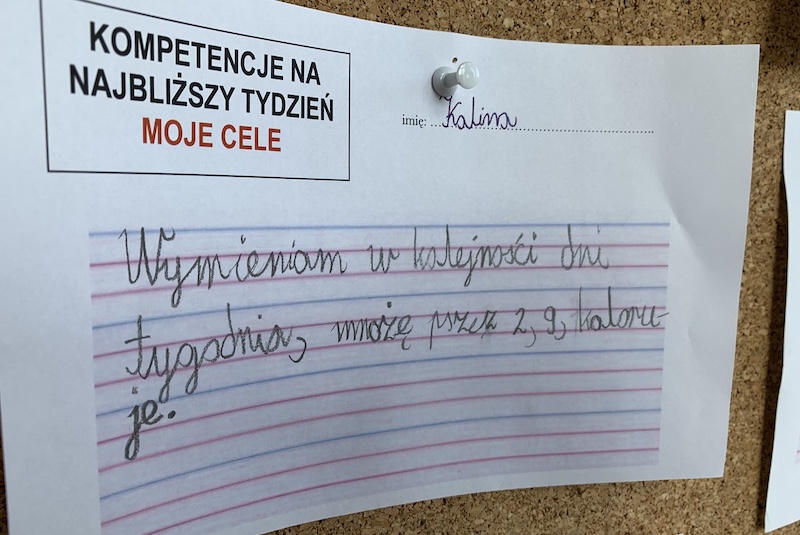 KOMPETENCJE NA
NAJBLIŻSZY TYDZIEŃ
MOJE CELE
imię: Kalina
Wymieniam w kolejności dni
tygodnia, mnożę przez 2, 9, koloru-
je.